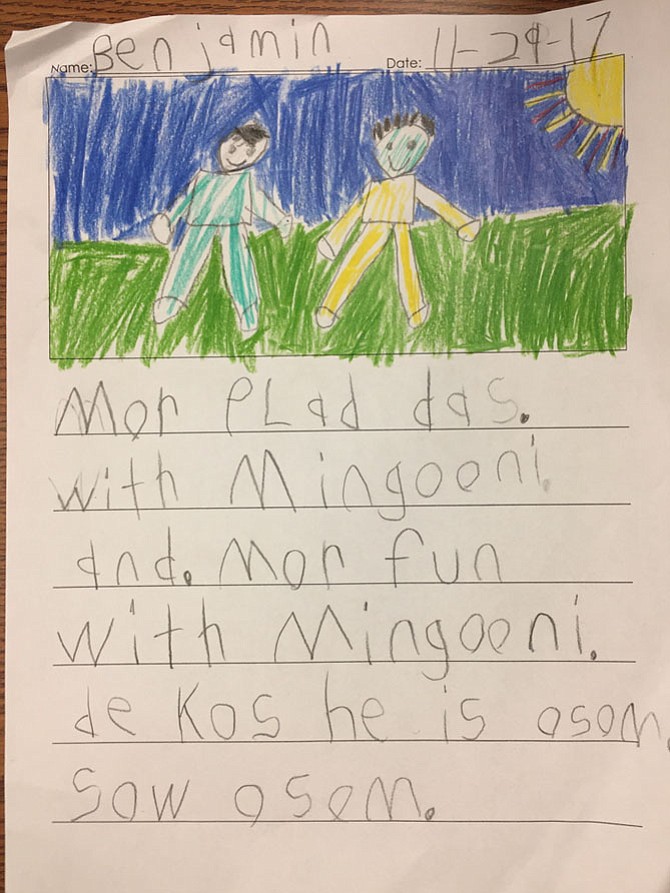 Name: Benjamin Date: 11-29-17
Mor PLad das.
with Mingooni.
and. Mor fun
with Mingooni.
de Kos he is osom.
Sow osem.